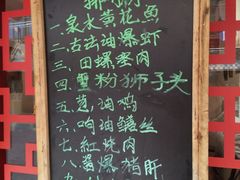 一.泉水黄花鱼
二.古法油爆虾
三.田螺塞肉
四.蟹粉狮子头
五.葱油鸡
六.响油鳝丝
七.红烧肉
八.酱爆猪肝